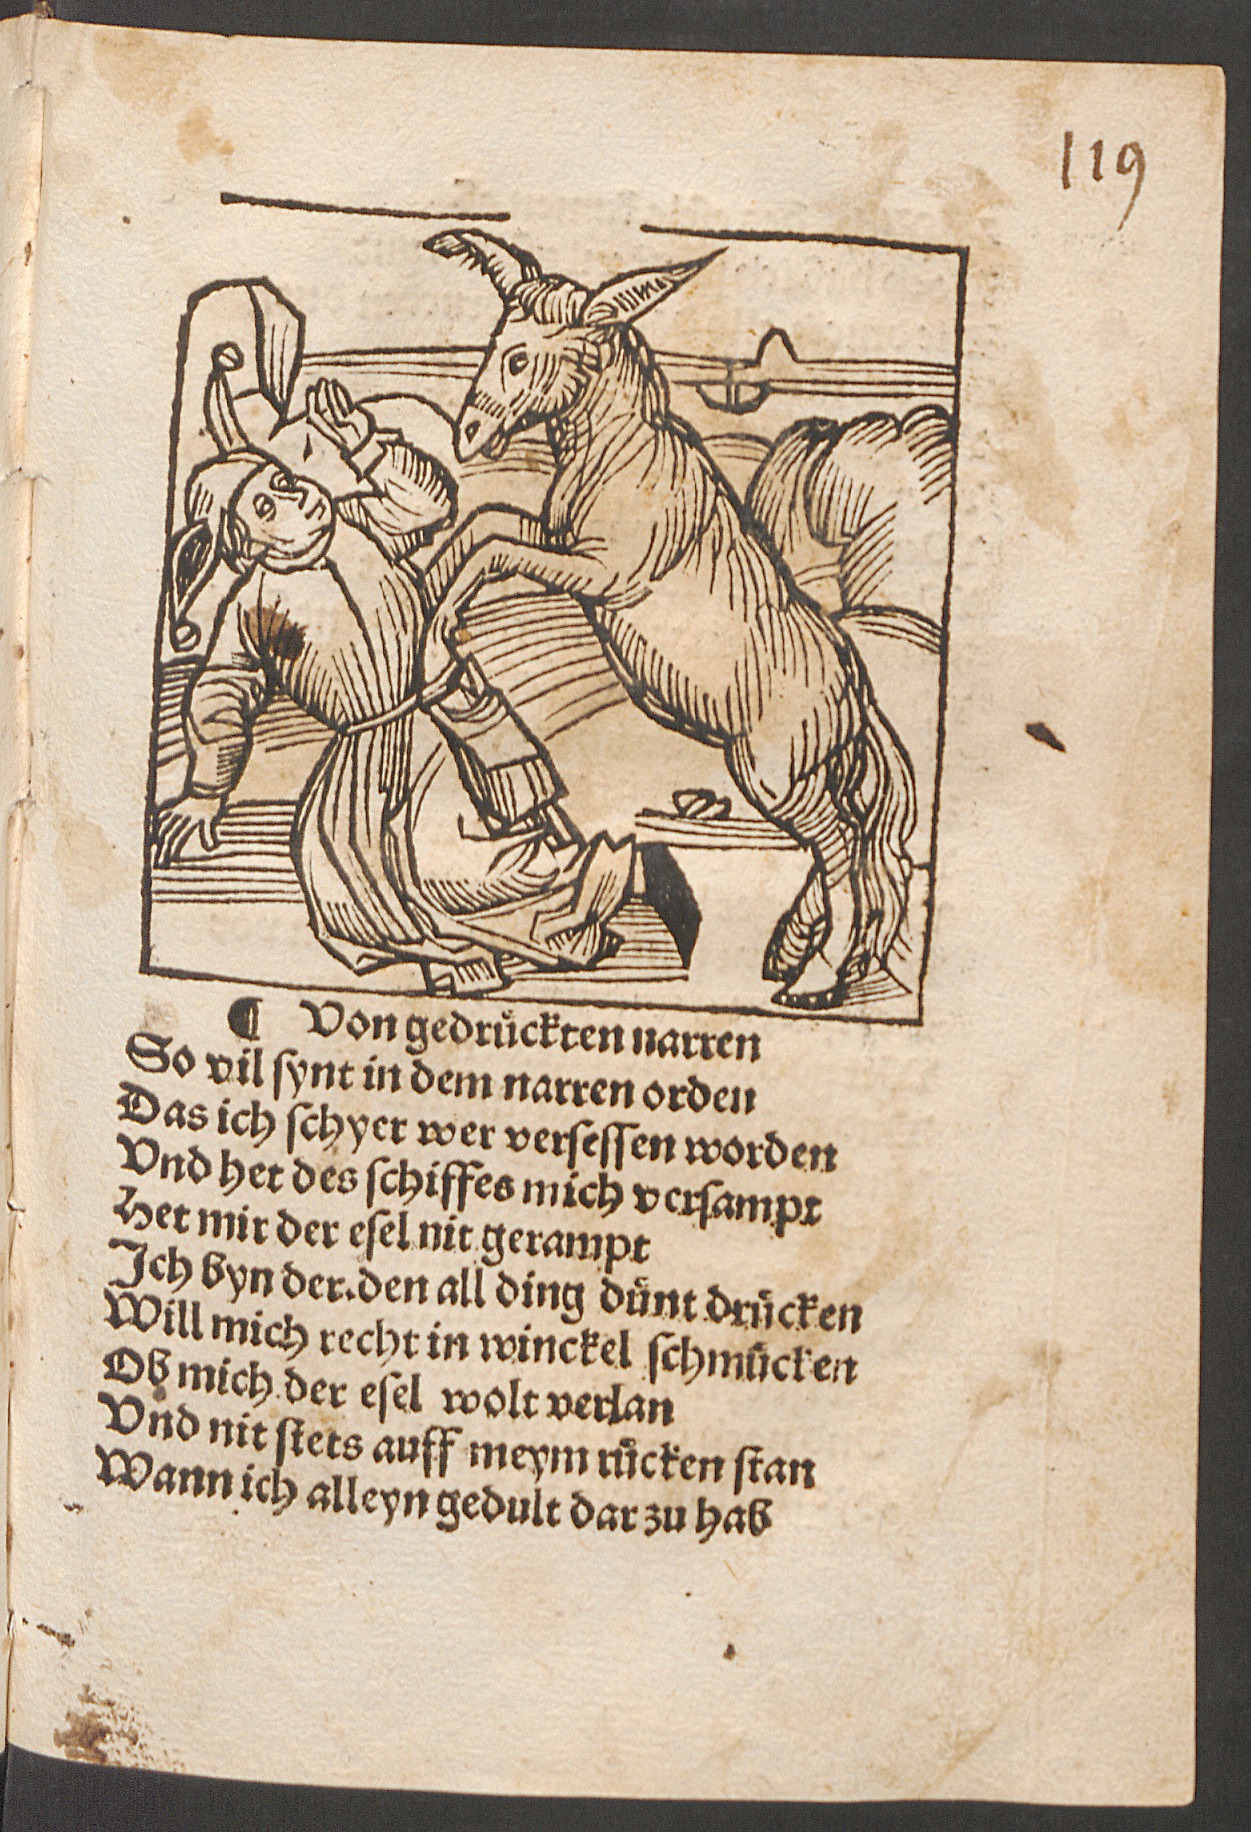 119
¶ Von gedruͤckten narren
So vil ſynt in dem narren orden
Das ich ſchyer wer verſeſſen worden
Vnd het des ſchiffes mich verſampt
Het mir der eſel nit gerampt
Ich byn der.den all ding duͤnt druͤcken
Will mich recht in winckel ſchmuͤcken
Ob mich der eſel wolt verlan
Vnd nit ſtets auff meym ruͤcken ſtan
Wann ich alleyn gedult dar zu hab